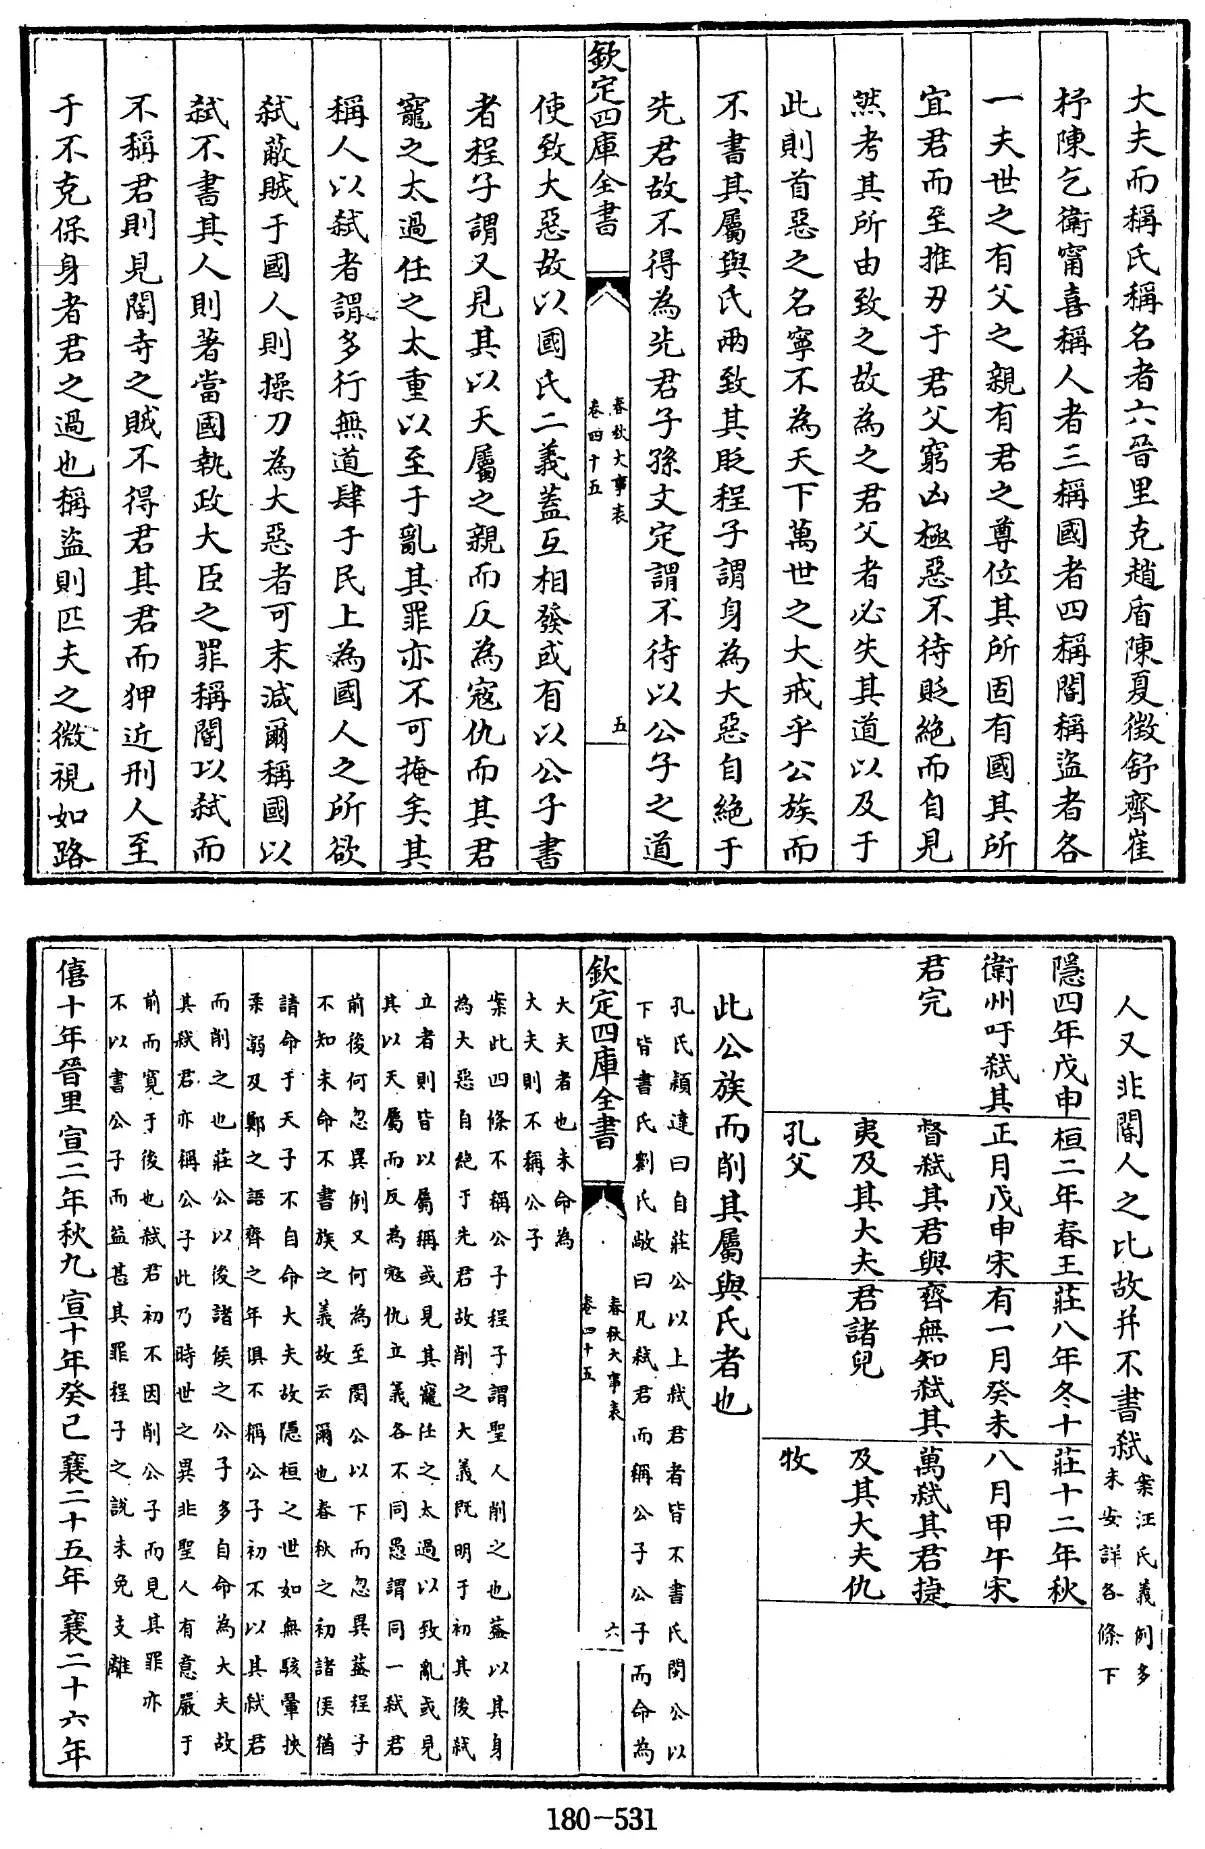 大夫而稱氏稱名者六晉里克趙盾陳夏徵舒齊崔
杼陳乞衛甯喜稱人者三稱國者四稱閽稱盜者各
一夫世之有父之親有君之尊位其所固有國其所
宜君而至推刃于君父窮凶極惡不待貶絶而自見
然考其所由致之故為之君父者必失其道以及于
此則首惡之名寧不為天下萬世之大戒乎公族而
不書其屬與氏兩致其貶程子謂身為大惡自絶于
先君故不得為先君子孫文定謂不待以公子之道
欽定四庫全書
春秋大事表
卷四十五
五
使致大惡故以國氏二義蓋互相發或有以公子書
者程子謂又見其以天屬之親而仄為寇仇而其君
寵之太過任之太重以至于亂其罪亦不可掩矣其
稱人以弒者謂多行無道肆于民上為國人之所欲
弒蔽賊于國人則操刀為大惡者可末減爾稱國以
弒不書其人則著當國執政大臣之罪稱閽以弒而
不稱君則見閽寺之賊不得君其君而狎近刑人至
于不克保身者君之過也稱盜則匹夫之微視如路
人又非閽人之比故并不書弒
案汪氏義例多
未安詳各條下
隱四年戊申
衛州吁弒其
君完
桓二年春王
正月戊申宋
督弒其君與
夷及其大夫
孔父
莊八年冬十
有一月癸未
齊無知弒其
君諸兒
莊十二年秋
八月甲午宋
萬弒其君捷
及其大夫仇
牧
此公族而削其屬與氏者也
孔氏穎達曰自莊公以上弒君者皆不書氏閔公以
下皆書氏劉氏敞曰凡弒君而稱公子公子而命為
欽定四庫全書
春秋大事表
卷四十五
六
大夫者也未命為
大夫則不稱公子
案此四條不稱公子程子謂聖人削之也蓋以其身
為大惡自絶于先君故削之大義既明于初其後弒
立者則皆以屬稱或見其寵任之太過以致亂或見
其以天屬而反為寇仇立義各不同愚謂同一弒君
前後何忽異例又何為至閔公以下而忽異蓋程子
不知未命不書族之義故云爾也春秋之初諸侯猶
請命于天子不自命大夫故隱桓之世如無駭翬挾
柔溺及鄭之語齊之年俱不稱公子初不以其弒君
而削之也莊公以後諸侯之公子多自命為大夫故
其弒君亦稱公子此乃時世之異非聖人有意嚴于
前而寬于後也弒君初不因削公子而見其罪亦
不以書公子而益甚其罪程子之說未免支離
僖十年晉里
宣二年秋九
宣十年癸巳
襄二十五年
襄二十六年
180-531